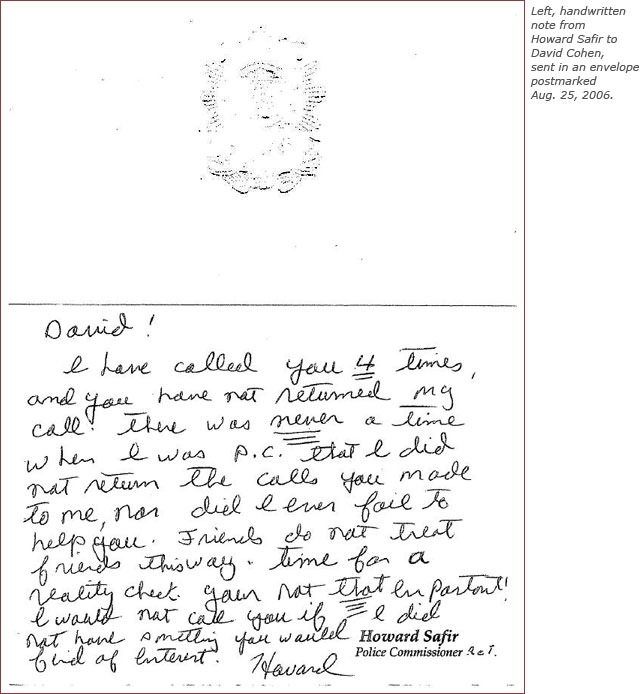 Left, handwritten
note from
Howard Safir to
David Cohen,
sent in an envelope
postmarked
Aug. 25, 2006.
David!
I have called you 4 times,
and you have not returned my
call! There was never a time
when I was P.C. that I did
not return the calls you made
to me, nor did I ever fail to
help you. Friends do not treat
friends this way. Time for a
reality check. Your not that Important!
I would not call you if I did
not have something you would
find of Interest.
Howard
Howard Safir
Police Commissioner Ret.